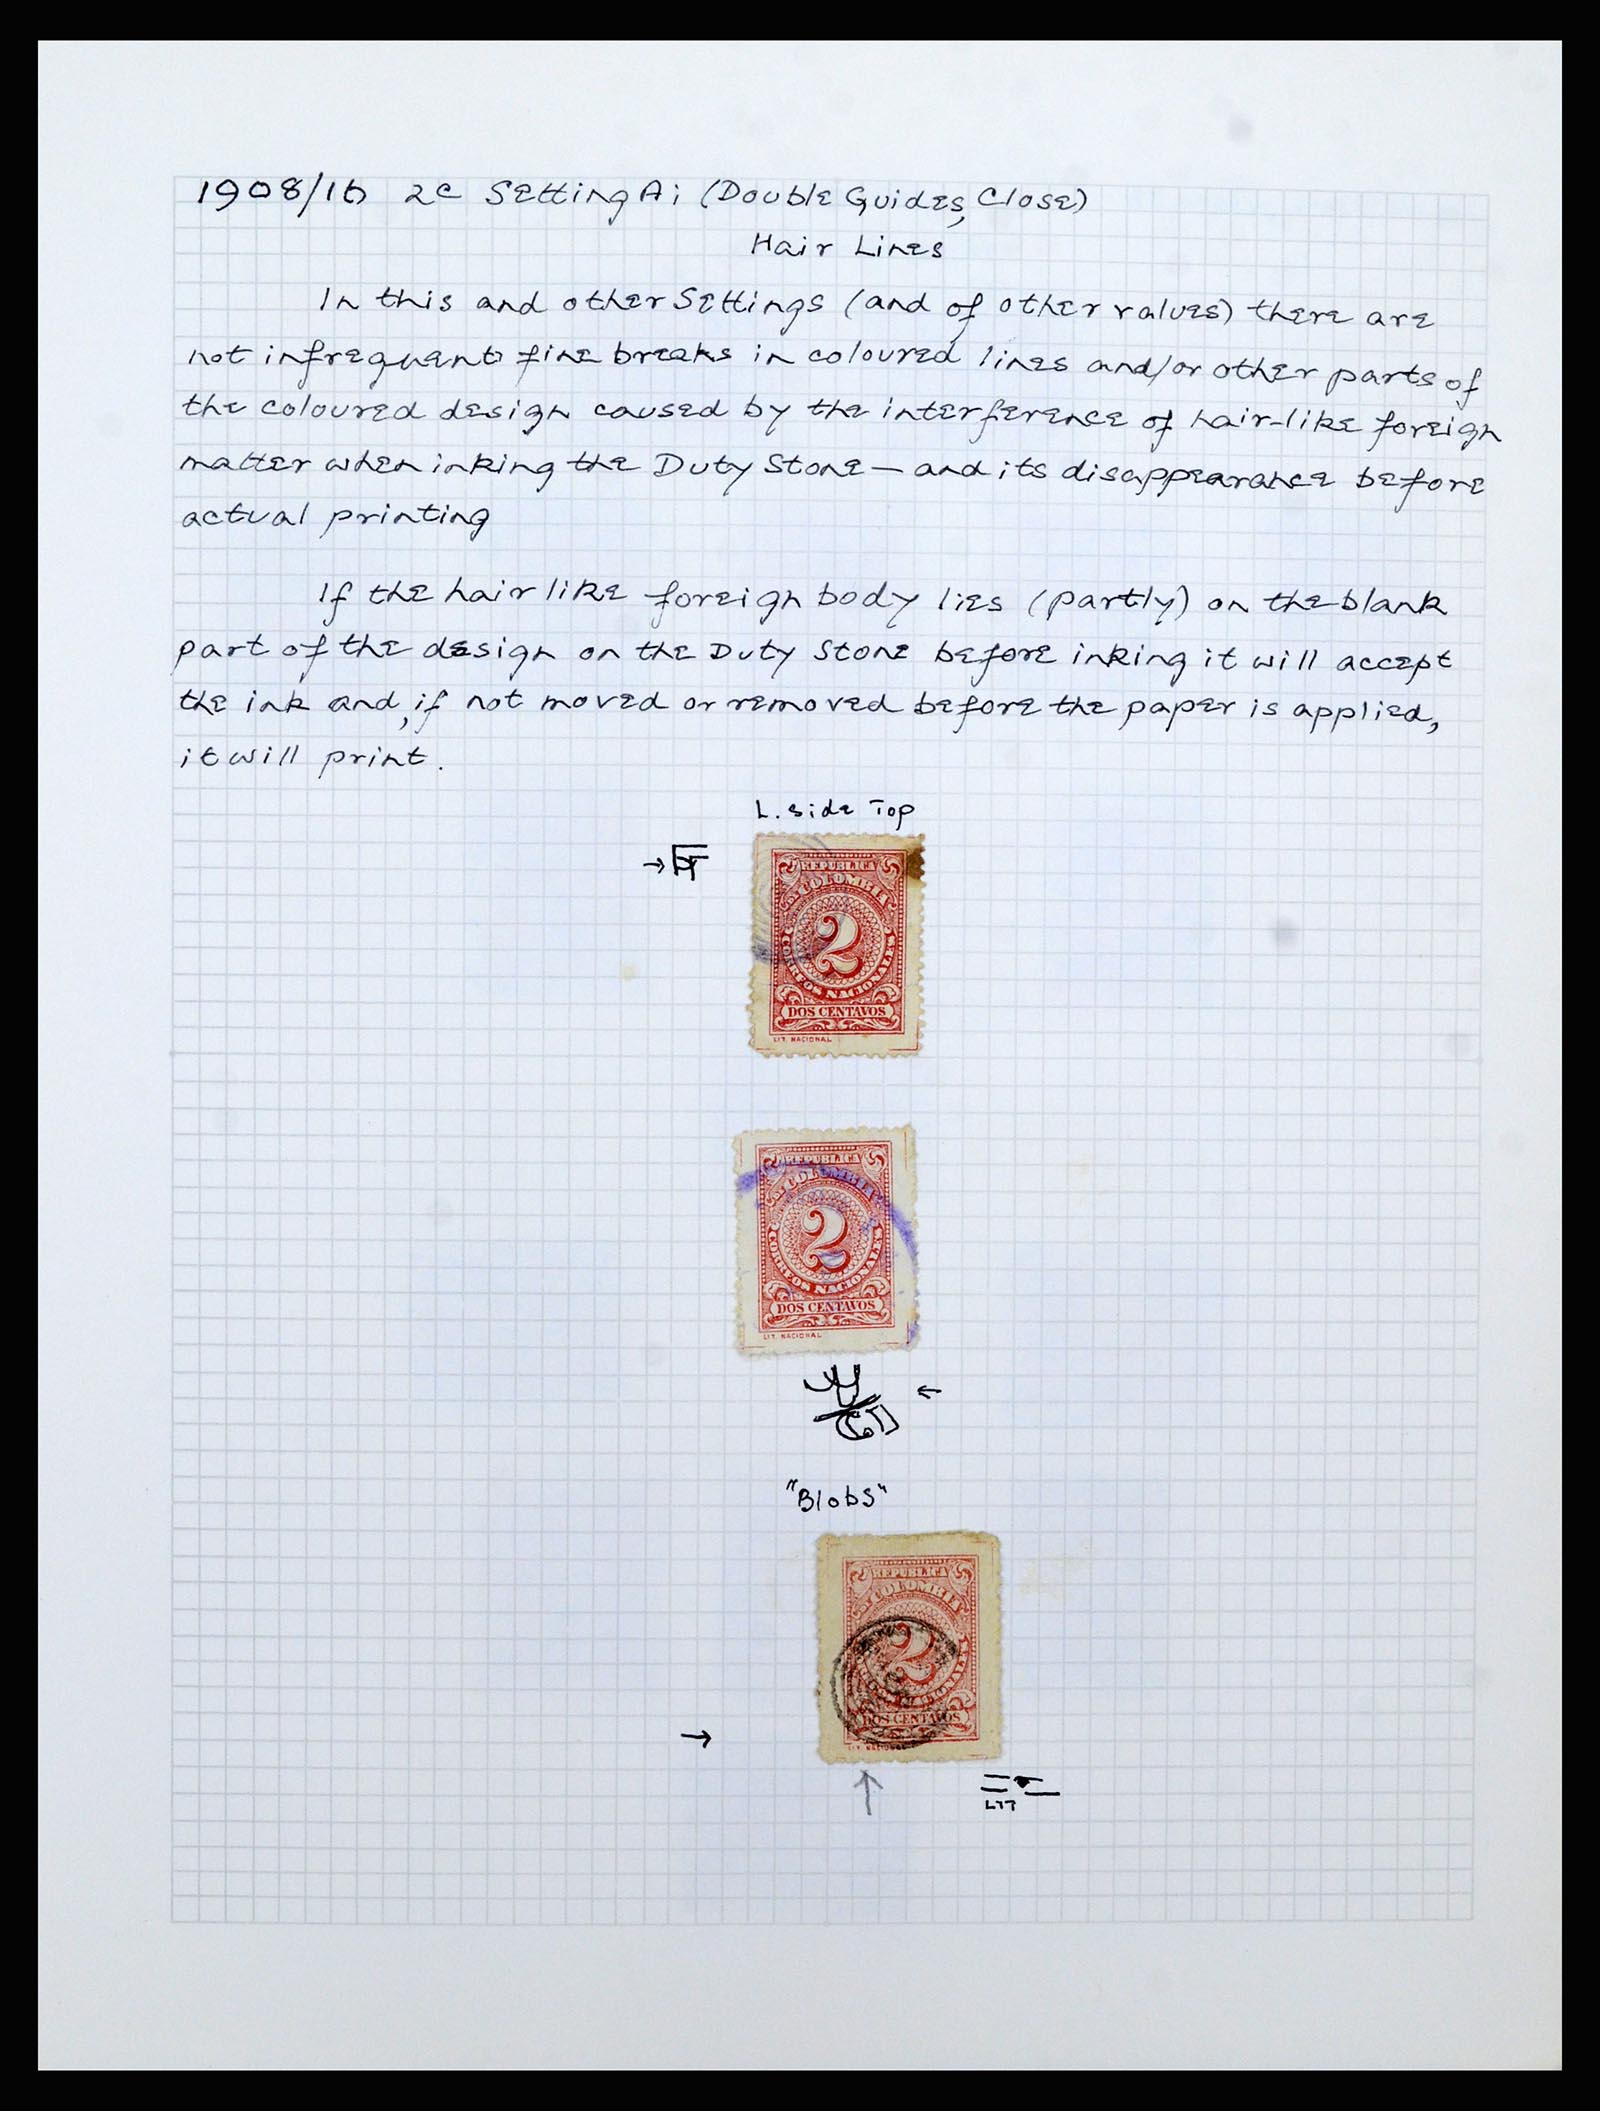 1908/16 2c Setting Ai (Double Guides, Close)
Hair Lines
In this and other Settings (and of other values) there are
not infrequent fine breaks in coloured lines and/or other parts of
the coloured design caused by the interference of hair-like foreign
matter when inking the Duty Stone — and its disappearance before
actual printing
If the hair like foreign body lies (partly) on the blank
part of the design on the Duty Stone before inking it will accept
the ink and, if not moved or removed before the paper is applied,
it will print.
L. side Top
REPUBLICA
DE COLOMBIA
2
CORREOS NACIONALES
DOS CENTAVOS
LIT. NACIONAL
REPUBLICA
DE COLOMBIA
2
CORREOS NACIONALES
DOS CENTAVOS
LIT. NACIONAL
"Blobs"
REPUBLICA
DE COLOMBIA
2
CORREOS NACIONALES
DOS CENTAVOS
LIT. NACIONAL